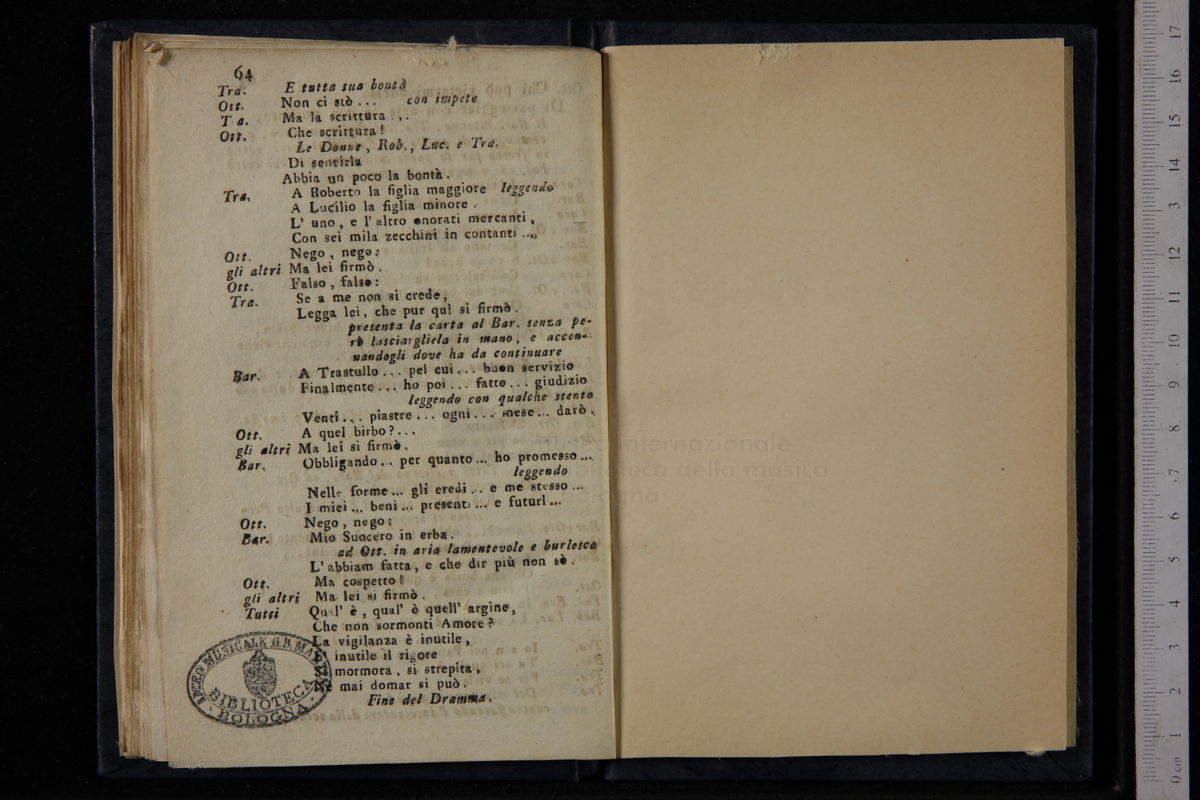 64
Tra. E tutta sua bontà
Ott. Non ci stò ... con impeto
T a. Ma la scrittura . , .
Ott. Che scrittura !
Le Donne , Rob. , Luc. e Tra.
Di sentirla
Abbia un poco la bontà .
Tra. A Roberto la figlia maggiore leggendo
A Lucilio la figlia minore .
L' uno , e l' altro onorati mercanti ,
Con sei mila zecchini in contanti ...
Ott. Nego , nego :
gli altri Ma lei firmò .
Ott. Falso , falso :
Tra. Se a me non si crede,
Legga lei, che pur quì si firmò .
presenta la carta al Bar. senza pe-
rò lasciargliela in mano , e accen-
nandogli dove ha da continuare
Bar. A Trastullo ... pel cui ... buon servizio
Finalmente ... ho poi ... fatto ... giudizio
leggendo con qualche stento
Venti ... piastre ... ogni ... mese ... darò .
Ott. A quel birbo ? ...
gli altri Ma lei si firmò .
Bar. Obbligando ... per quanto ... ho promesso ...
leggendo
Nelle forme ... gli eredi ... e me stesso ...
I miei ... beni ... presenti ... e futuri ...
Ott. Nego , nego :
Bar. Mio Suocero in erba .
ad Ott. in aria lamentevole e burlesca
L' abbiam fatta , e che dir più non sè .
Ott. Ma cospetto !
gli altri Ma lei si firmò .
Tutti Qual' è , qual' è quell' argine ,
Che non sormonti Amore ?
La vigilanza è inutile ,
E' inutile il rigore
Si mormora , si strepita ,
Nè mai domar si può .
Fine del Dramma .
BIBLIOTECA
BOLOGNA
internazionale
biblioteca della musica
Bologna
0 cm 1 2 3 4 5 6 7 8 9 10 11 12 13 14 15 16 17